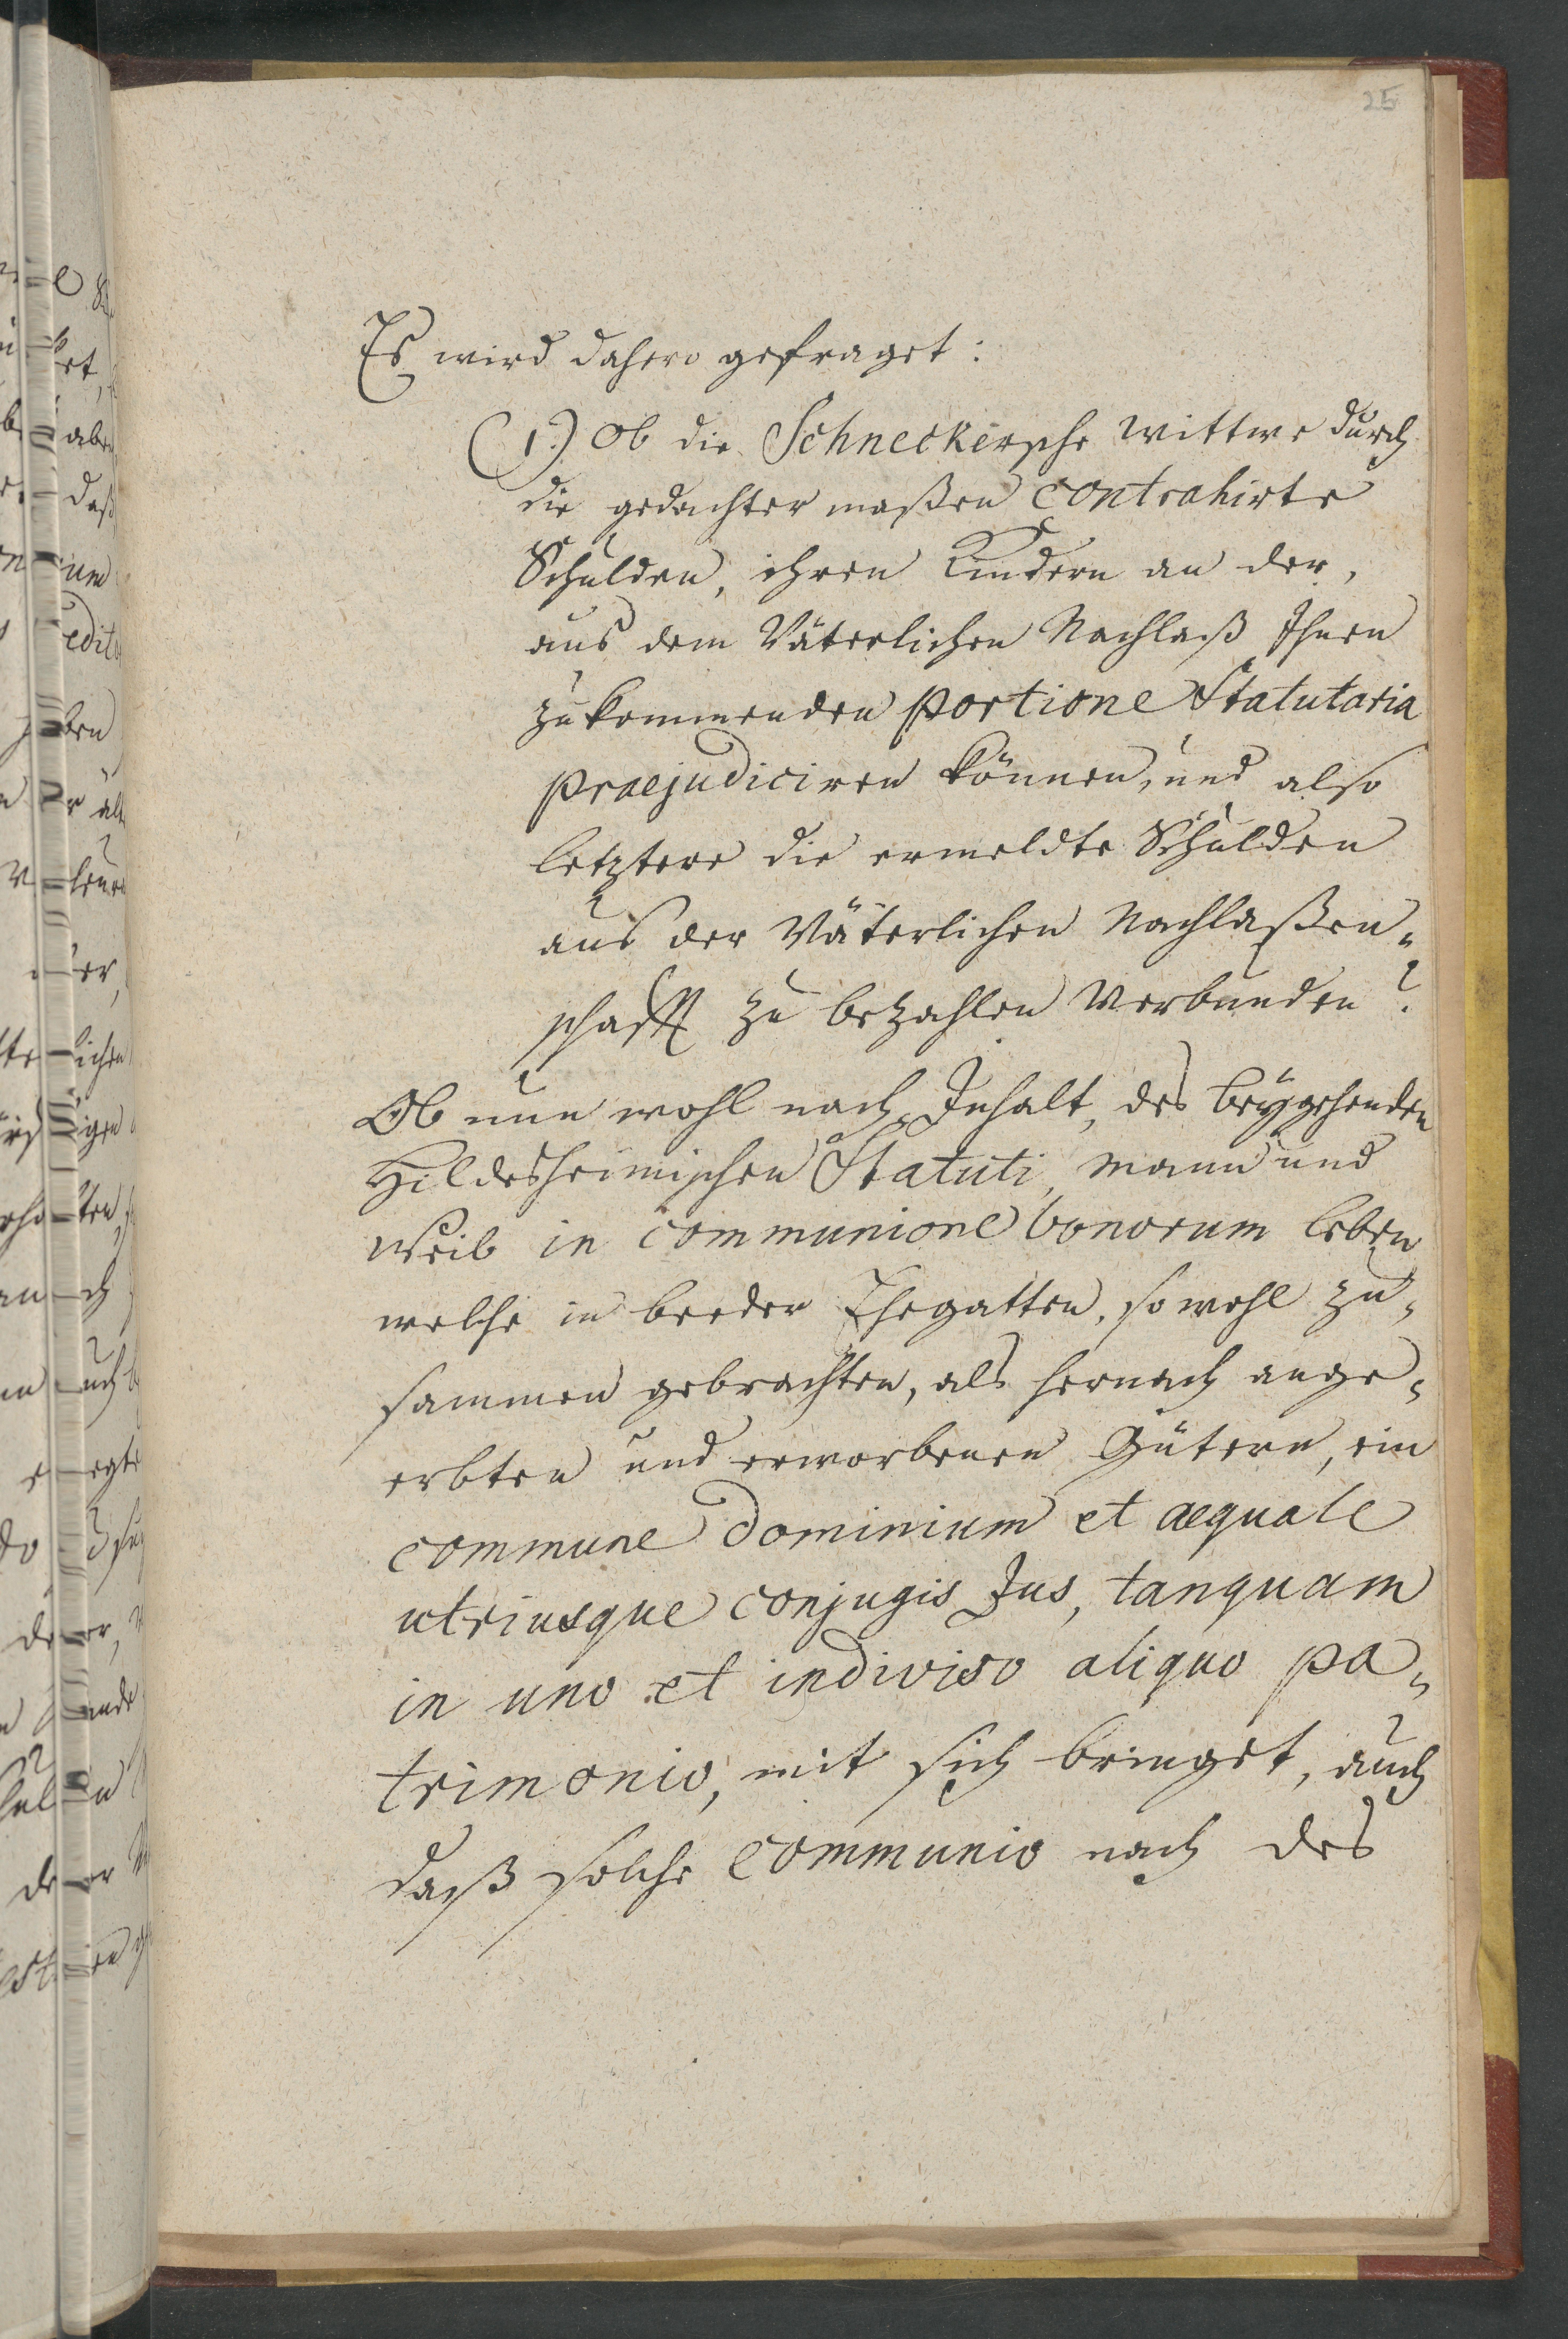 25
Es wird dahero gefraget:
(1.) Ob die Schneckersche Wittwe durch
die gedachter maßen contrahirte
Schulden, ihren Kindern an der,
aus dem Väterlichen Nachlaß Ihnen
zukommenden portione Statutaria
praejudiciren können, und also
letztere die ermeldte Schulden
aus der Väterlichen Nachlaßen„
schafft zu bezahlen Verbunden?
Ob nun wohl nach Inhalt, des beygehenden
Hildesheimischen Statuti, Mann und
Weib in communione bonorum leben
welche in beeder Ehegatten, sowohl zu„
sammen gebrachten, als hernach ange„
erbten und erworbenen Gütern, ein
commune dominium et aequale
utriusque conjugis Jus, tanquam
in uno et indiviso aliquo pa„
trimonio, mit sich bringet, auch
daß solche communio nach des